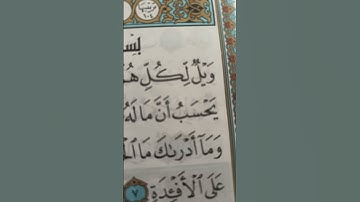 وَيْلٌ لِّكُلِّ
يَحْسَبُ أَنَّ مَالَهُ
وَمَآ أَدْرَىٰكَ مَا
عَلَى ٱلْأَفْـِٔدَةِ ٧